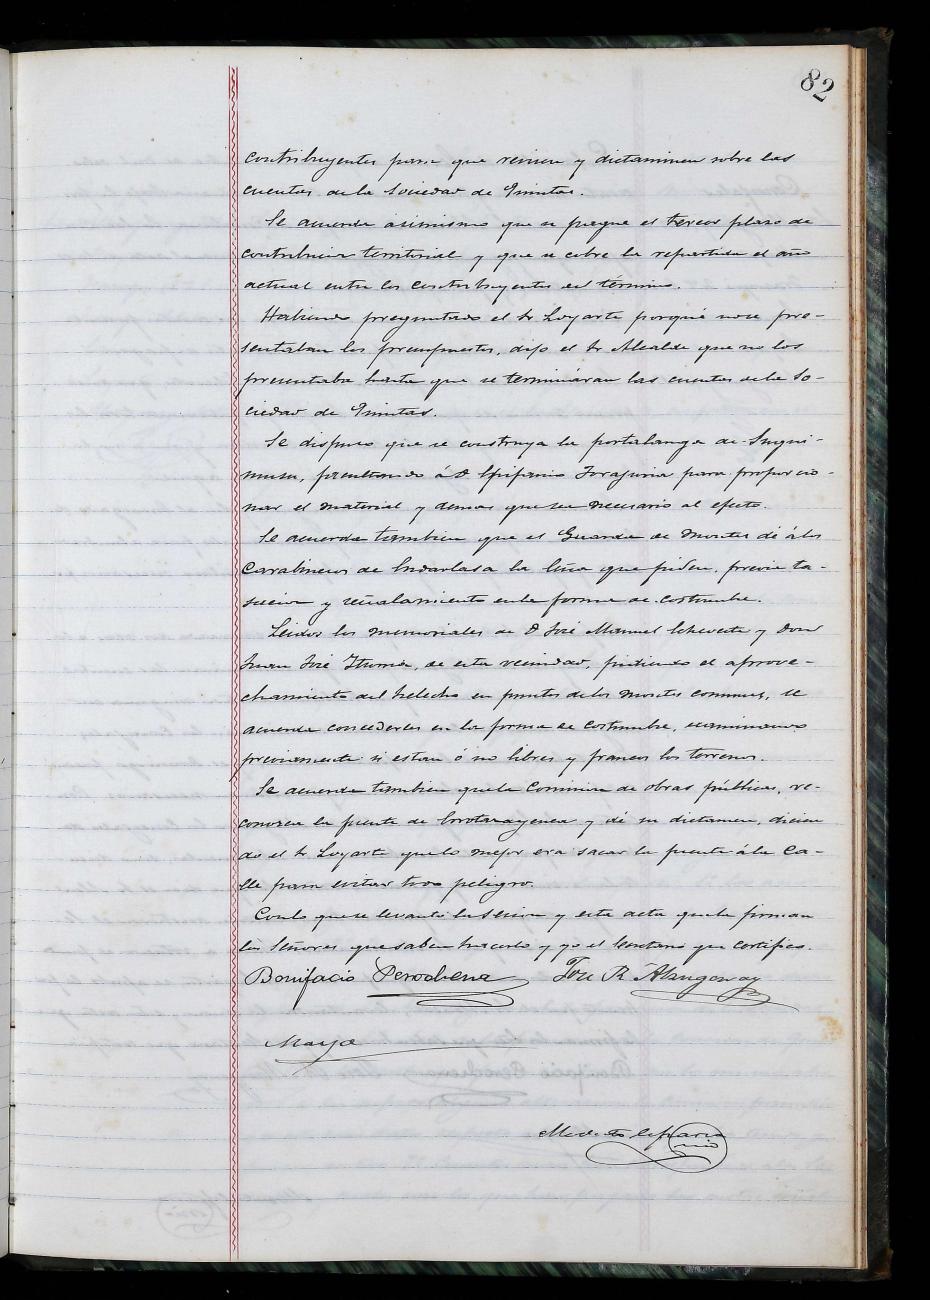 82
contribuyentes para que revisen y dictaminen sobre las
cuentas de la Sociedad de Quintas.
Se acuerda asimismo que se pague el tercer plazo de
contribucion territorial y que se cobre la repartida el año
actual entre los contribuyentes del término.
Habiendo preguntado el Sr Loyarte porqué no se pre-
sentaban los presupuestos, dijo el Sr Alcalde que no los
presentaba hasta que se terminaran las cuentas de la So-
ciedad de Quintas.
Se dispuso que se construya la portalanga de
facultando á D. Epifanio para proporcio-
nar el material y demas que sea necesario al efecto.
Se acuerda tambien que el Guarda de montes dé á los
Carabineros de Endarlasa la leña que piden, previa ta-
sacion y señalamiento en la forma de costumbre.
Leidos los memoriales de D José Manuel Echeveste y Don
Juan José Iturria, de esta vecindad, pidiendo el aprove-
chamiento del helecho en puntos de los montes comunes, se
acuerda concederles en la forma de costumbre, examinando
previamente si estan ó no libres y francos los terrenos.
Se acuerda tambien que la Comision de obras públicas, re-
conozca la fuente de y dé su dictamen, dicien
do el Sr Loyarte que lo mejor era sacar la fuente á la Ca-
lle para evitar todo peligro.
Con lo que se levantó la sesion y esta acta que la firman
los Señores que saben hacerlo y yo el Secretario que certifico.
Bonifacio Perochena José R.
Maya
Modesto